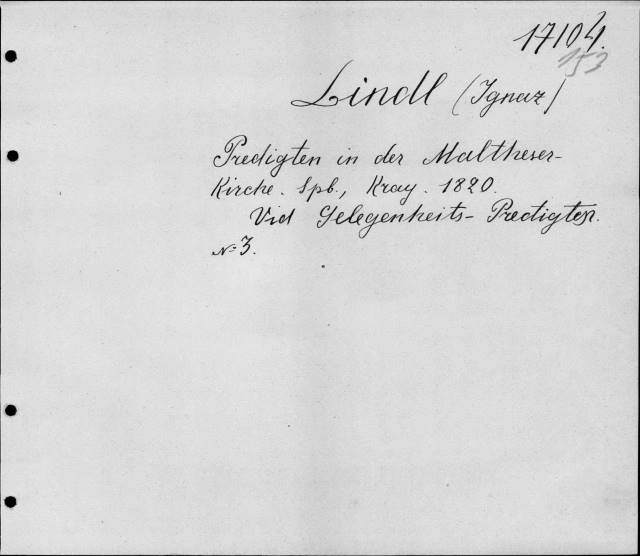 17104.
153
Lindl (Ignaz)
Predigten in der Maltheser-
Kirche. Spb., Kray. 1820.
Vid Gelegenheits-Predigten.
№ 3.